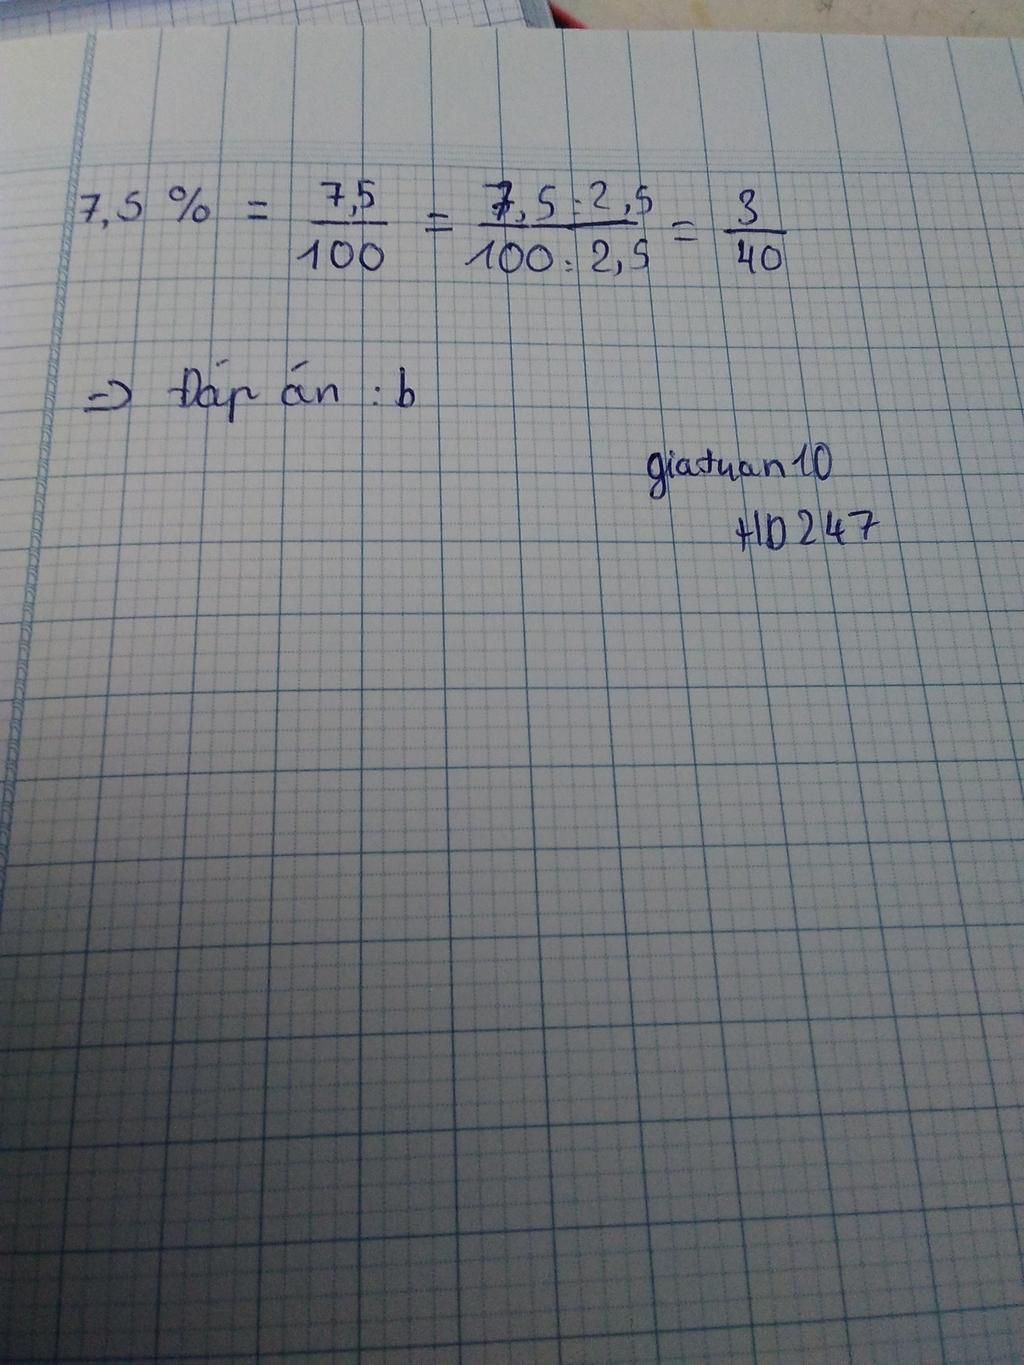 7,5 % = 7,5/100 = 7,5:2,5/100:2,5 = 3/40
=> Đáp án : b
giatuan10
HD247